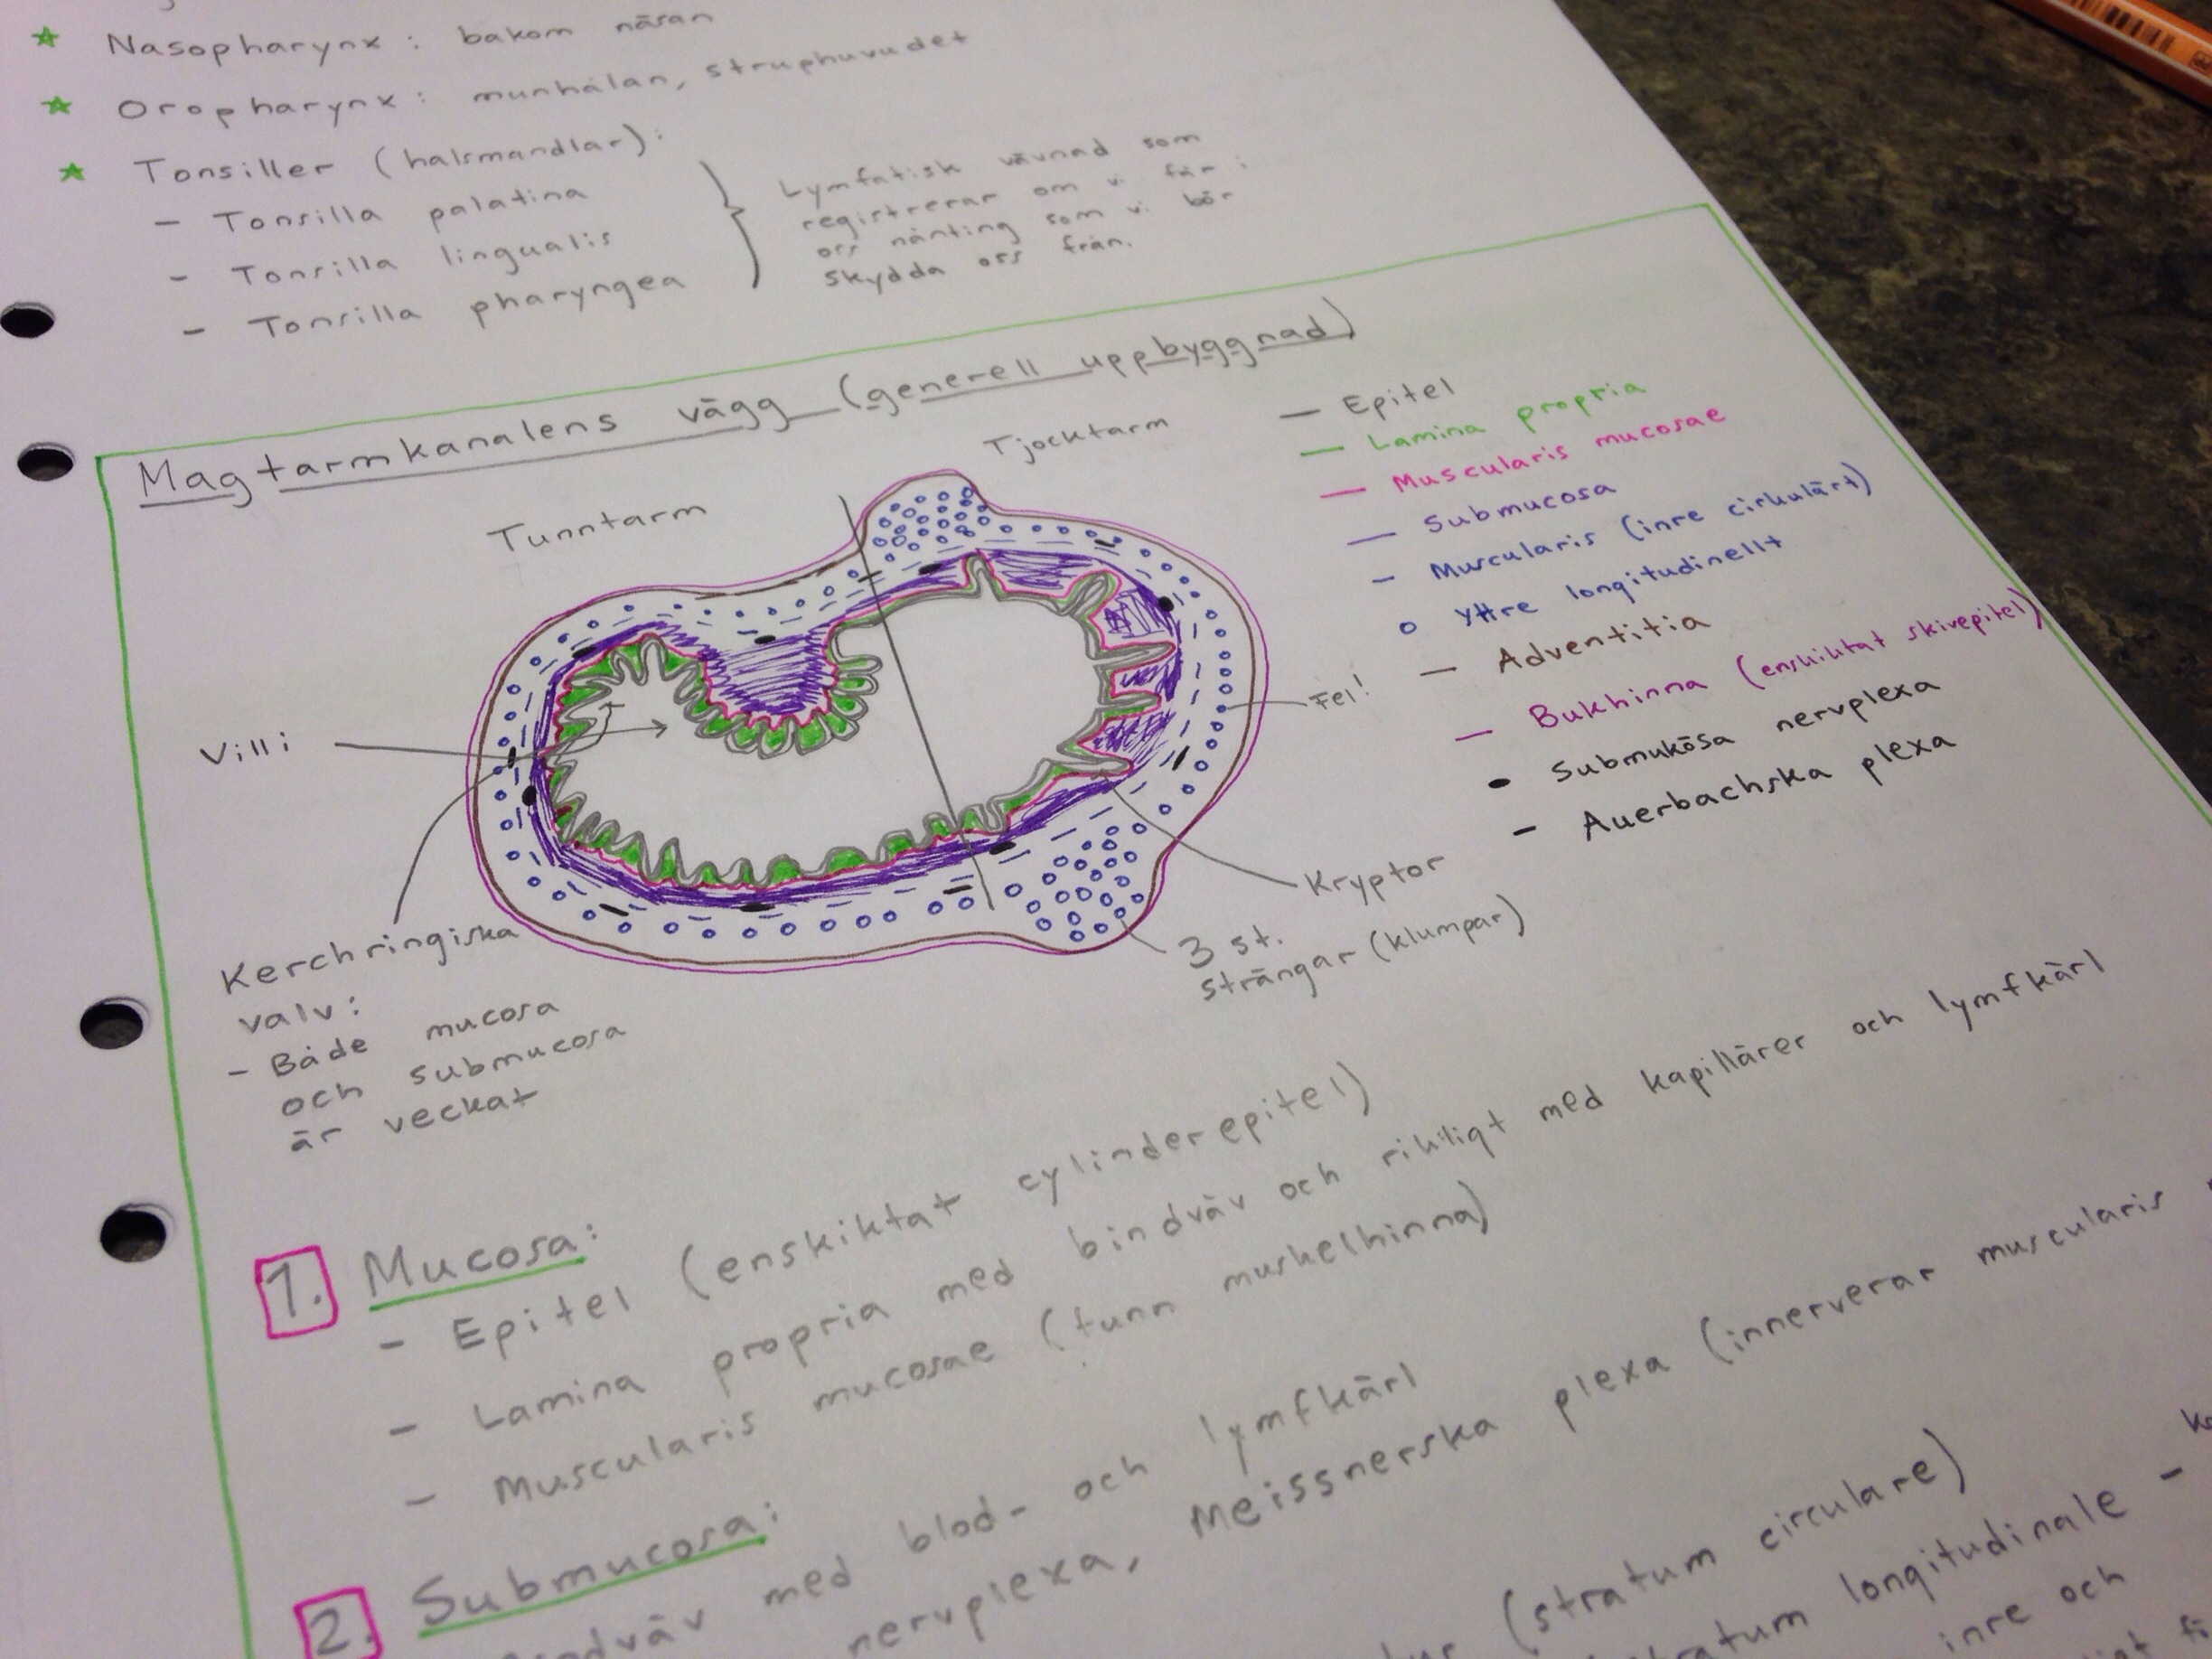 Nasopharynx: bakom näsan
Oropharynx: munhålan, struphuvudet
Tonsiller (halsmandlar):
- Tonsilla palatina
- Tonsilla lingualis
- Tonsilla pharyngea
Lymfatisk vävnad som
registrerar om vi får i
oss nånting som vi bör
skydda oss från.
Magtarmkanalens vägg (generell uppbyggnad)
Tunntarm
Tjocktarm
— Epitel
— Lamina propria
— Muscularis mucosae
— Submucosa
- Muscularis (inre cirkulärt)
o Yttre longitudinellt
— Adventitia
— Bukhinna (enskiktat skivepitel)
• Submukösa nervplexa
- Auerbachska plexa
Fel!
Villi
Kryptor
3 st.
strängar (klumpar)
Kerchringiska
valv:
- Både mucosa
och submucosa
är veckat
1. Mucosa:
- Epitel (enskiktat cylinderepitel)
- Lamina propria med bindväv och rikligt med kapillärer och lymfkärl
- Muscularis mucosae (tunn muskelhinna)
2. Submucosa:
med blod- och lymfkärl
nervplexa, Meissnerska plexa (innerverar muscularis
(stratum circulare)
stratum longitudinale -
inre och